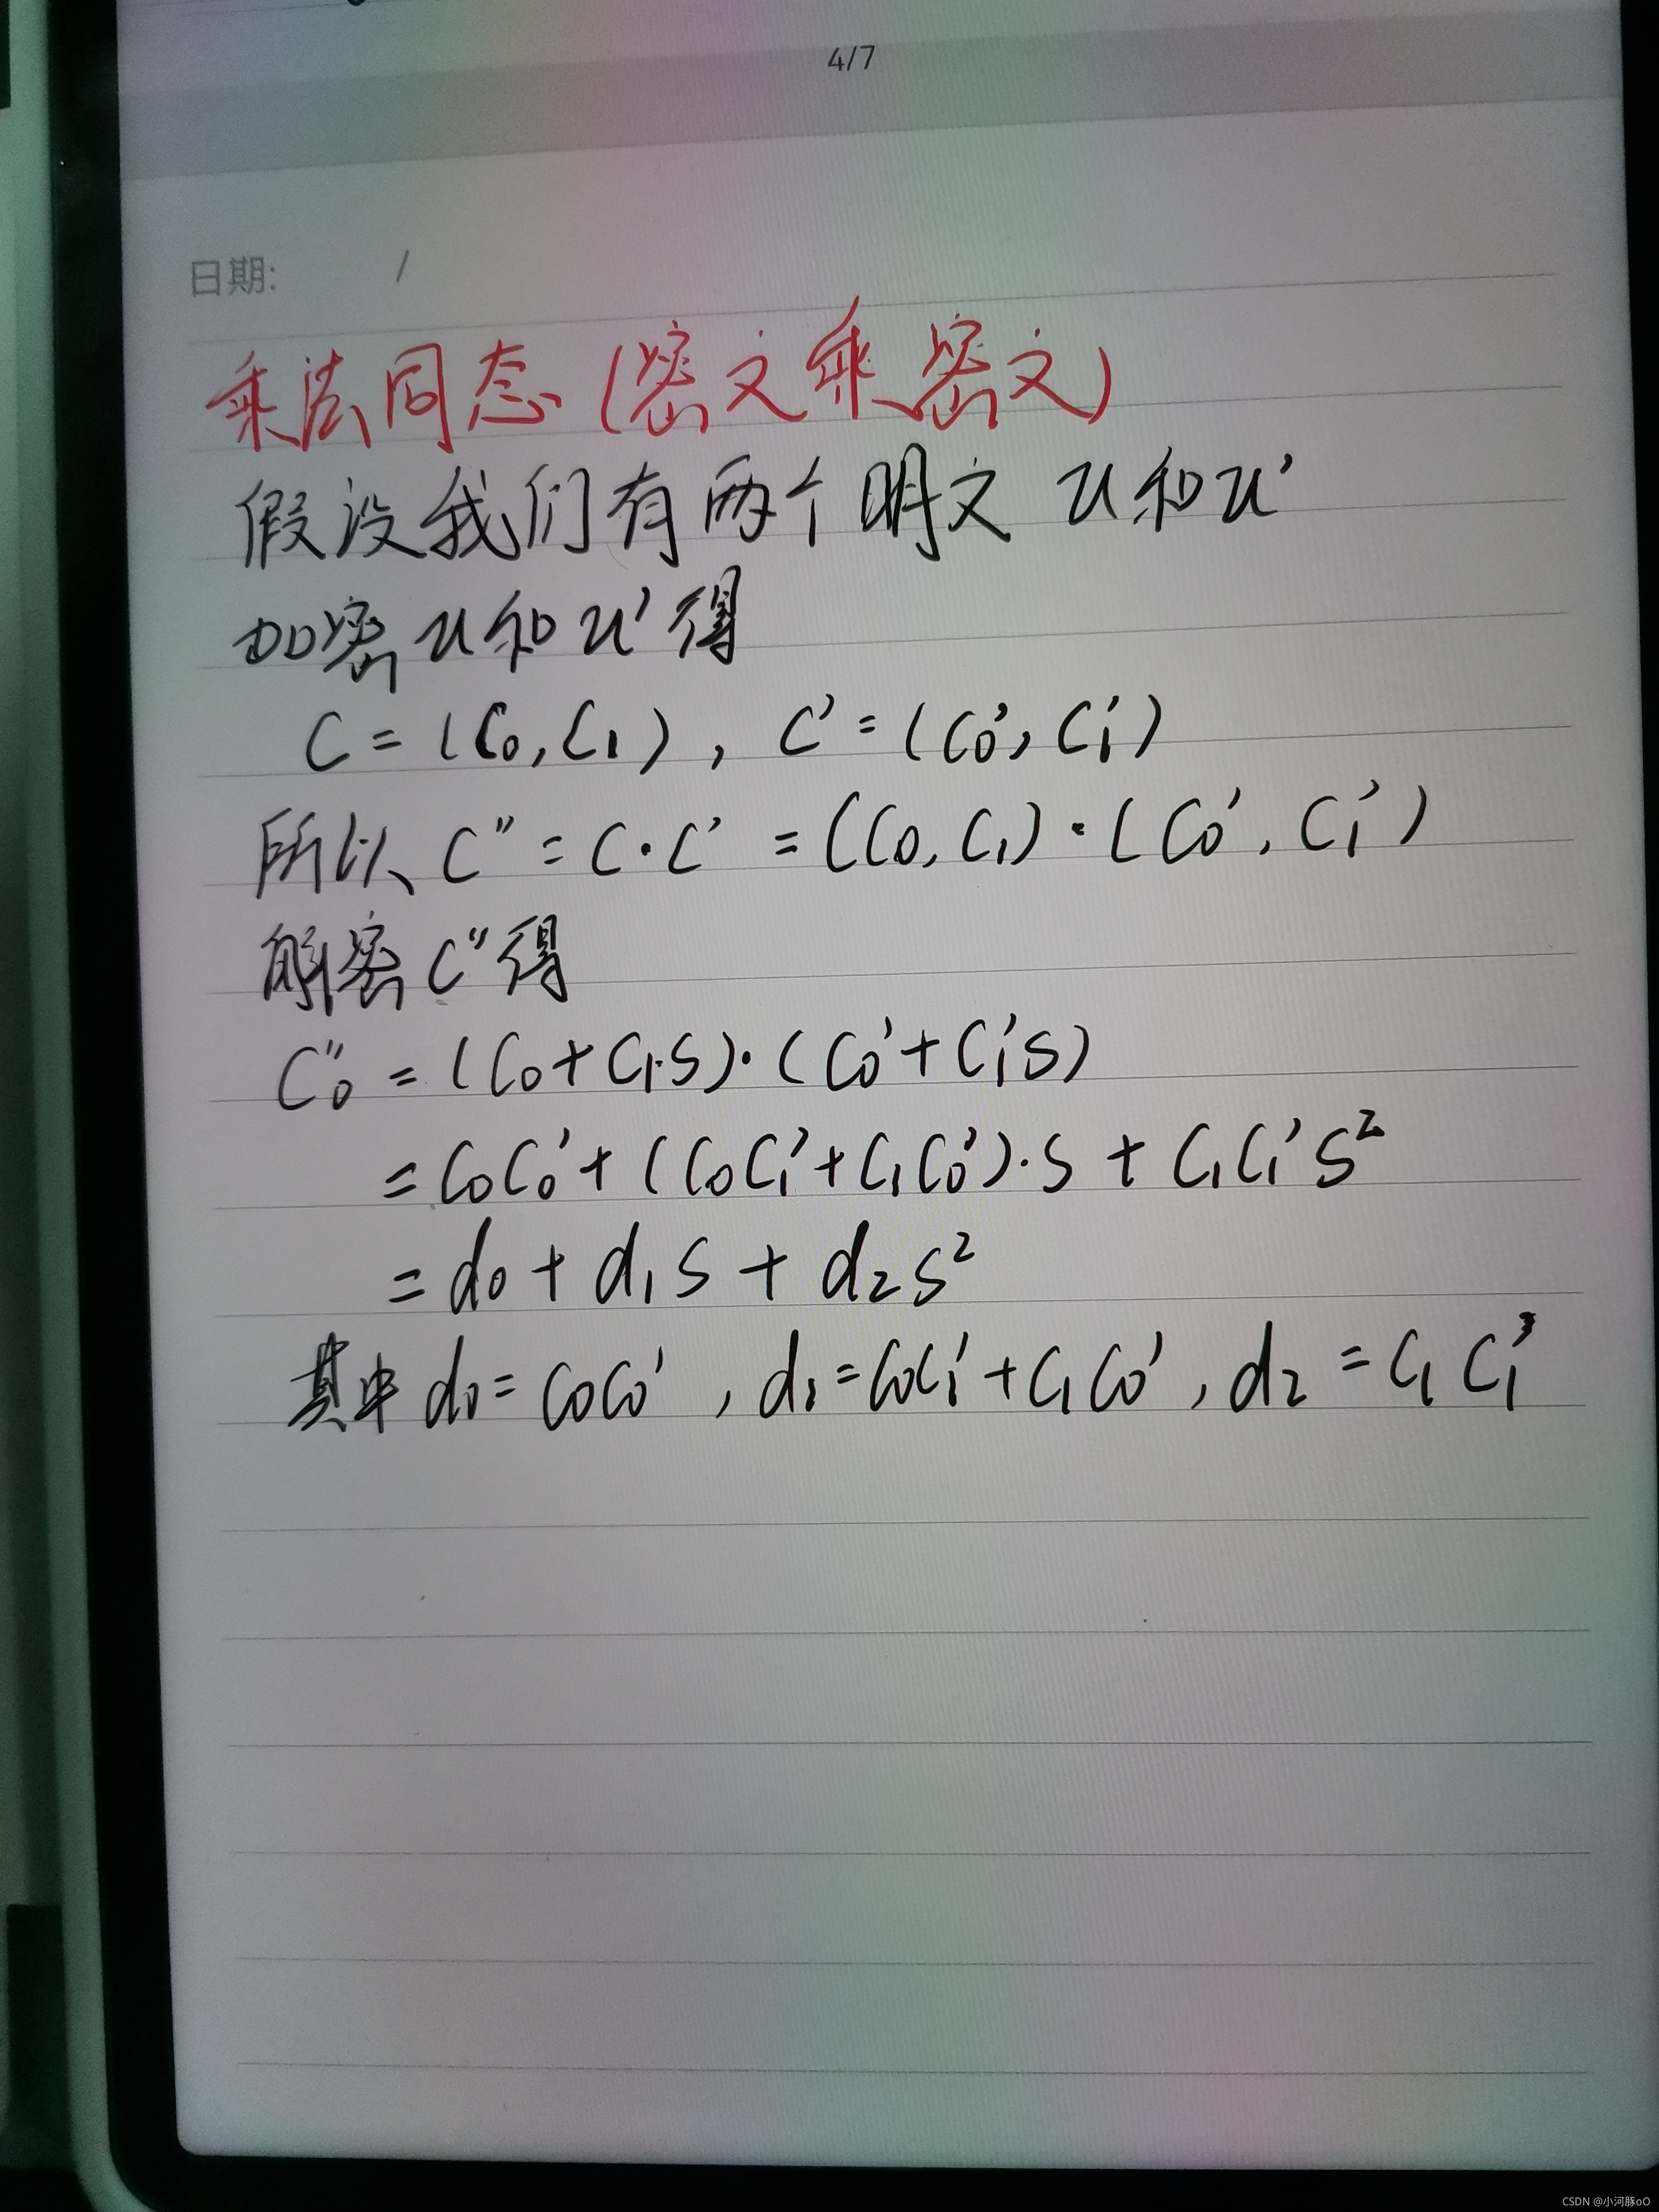 4/7
日期: /
乘法同态(密文乘密文)
假设我们有两个明文 u和u'
加密u和u'得
C=(C₀,C₁), C'=(C₀',C₁')
所以 C''=C·C'=(C₀,C₁)·(C₀',C₁')
解密C''得
C₀''=(C₀+C₁·S)·(C₀'+C₁'S)
=C₀C₀'+(C₀C₁'+C₁C₀')·S+C₁C₁'S²
=d₀+d₁S+d₂S²
其中d₀=C₀C₀',d₁=C₀C₁'+C₁C₀',d₂=C₁C₁'
CSDN @小河豚oO